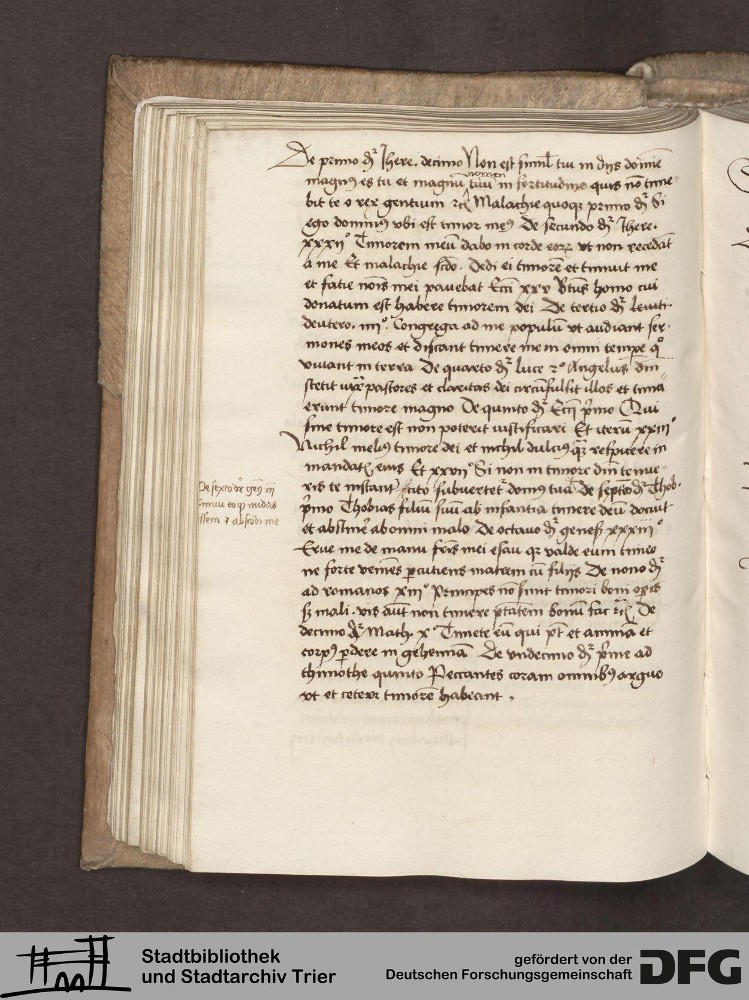 De primo dr Jhere. decimo Non est simil tui in dijs domine
magnus es tu et magnū nomen tuū in fortitudine quis nō time-
bit te o rex gentium Malachie quoque primo dr Si
ego dominus vbi est timor meus De secundo dr Jhere.
xxxii° Timorem meū dabo in corde eorum vt non recedāt
a me Et malachie scdo. Dedi ei timorē et timuit me
et a facie nois mei pavebat Ecci xxv Btus homo cui
donatum est habere timorem dei De tertio dr
deutero. iiii°. Congrega ad me populū vt audiant ser-
mones meos et discant timere me in omni tempe qo
viuant in terra De quarto dr luce 2° Angelus dni
stetit iuxta pastores et claritas dei circūfulsit illos et timu
erunt timore magno De quinto dr Ecci pmo Qui
sine timore est non poterit iustificari Et iterū xxiii°
Nichil melius timore dei et nichil dulcius qr respicere in
mandatis eius Et xxvii° Si non in timore dni tenue-
ris te instant cito subuertet domus tua De septio dr Thob.
pmo Thobias filiū suū ab infantia timere deū docuit
et abstinē ab omni malo De octavo dr genes xxxii°
Erue me de manu fris mei esau qr valde eum timeo
ne forte veniēs pcutiens matrem cū filijs De nono dr
ad romanos xiii° Principes nō sunt timori boni opis
sz mali. vis aūt non timere ptātem bonū fac De
decimo dr Math. x° Timete eū qui pt et animā et
corpus pdere in gehennā De vndecimo dr pme ad
thimothe quinto Peccantes coram omnibus argue
vt et ceteri timorē habeant.
De sexto dr gen iii
timui eo qd nudus
essem et abscōdi me
Stadtbibliothek
und Stadtarchiv Trier
gefördert von der
Deutschen Forschungsgemeinschaft
DFG